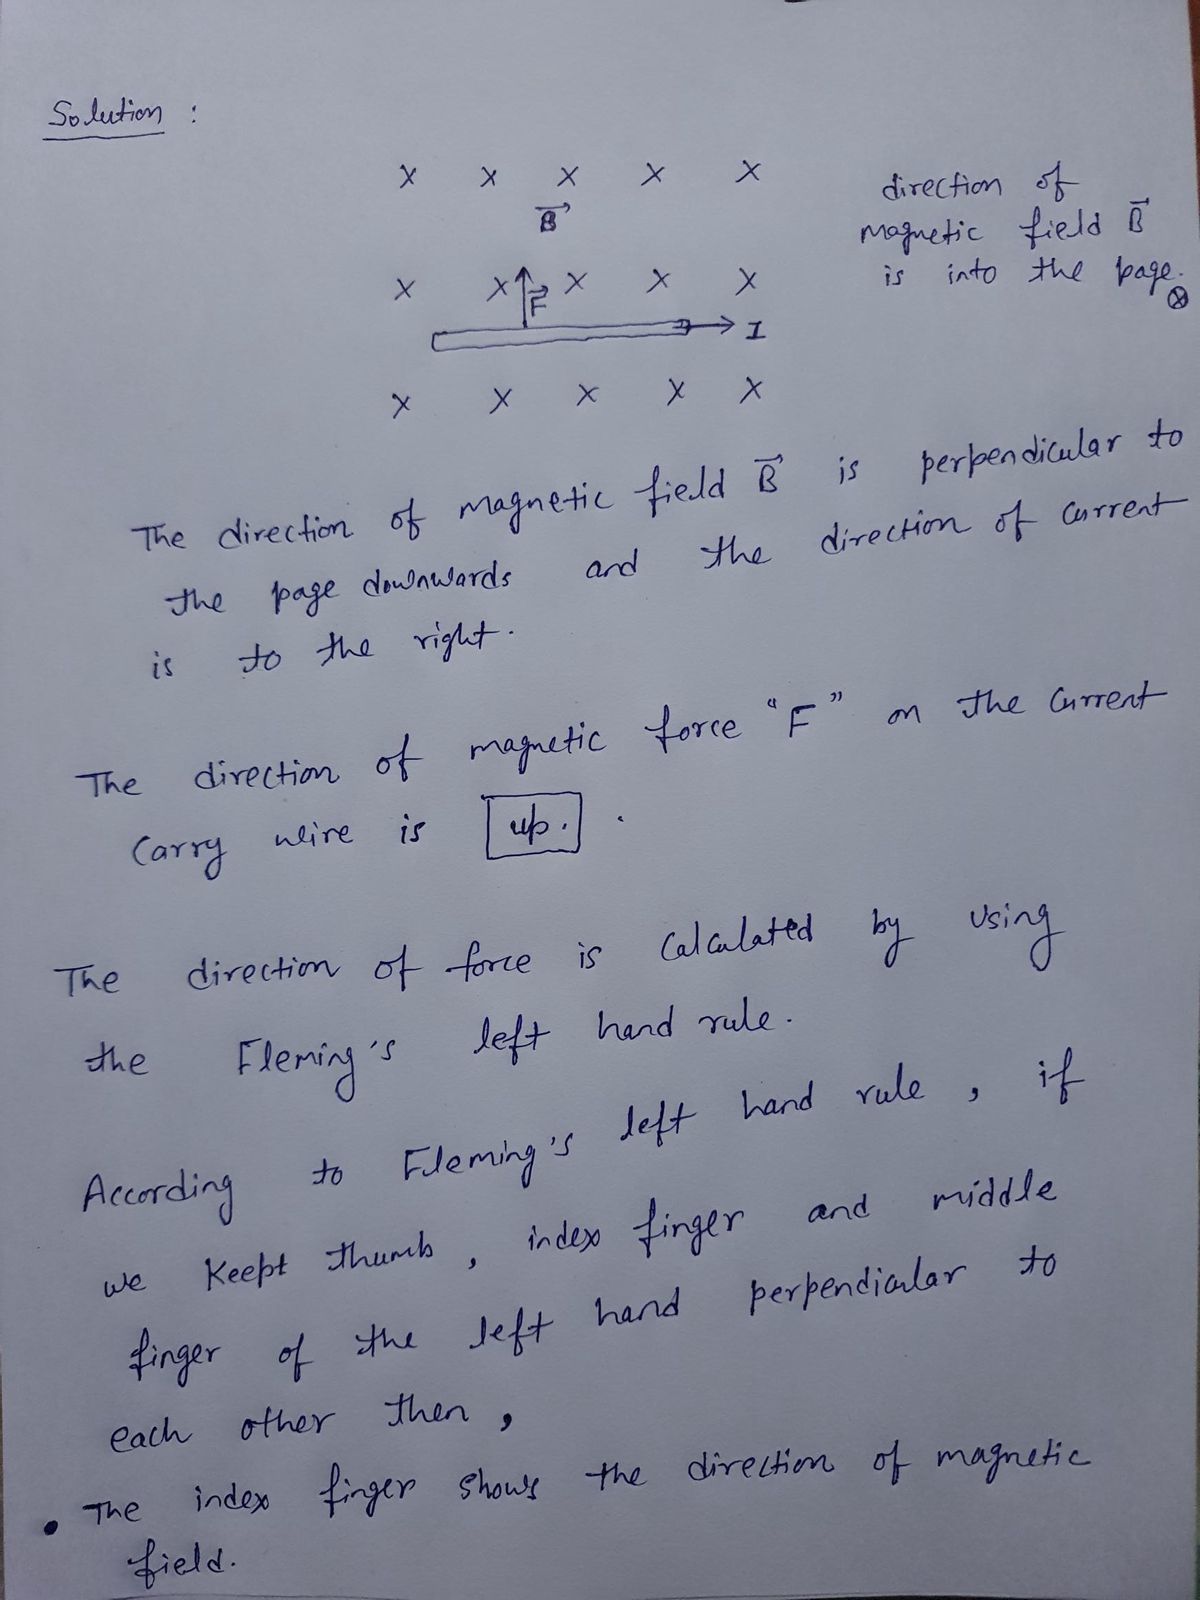 Solution :
X X X X X
B⃗
direction of
magnetic field B⃗
is into the page.
⊗
X X X X X
F⃗
I
X X X X X
The direction of magnetic field B⃗ is perpendicular to
the page downwards and the direction of current
is to the right.
The direction of magnetic force "F" on the current
carry wire is up. .
The direction of force is calculated by using
the Fleming's left hand rule.
According to Fleming's left hand rule, if
we Keept thumb, index finger and middle
finger of the left hand perpendicular to
each other then,
• The index finger shows the direction of magnetic
field.